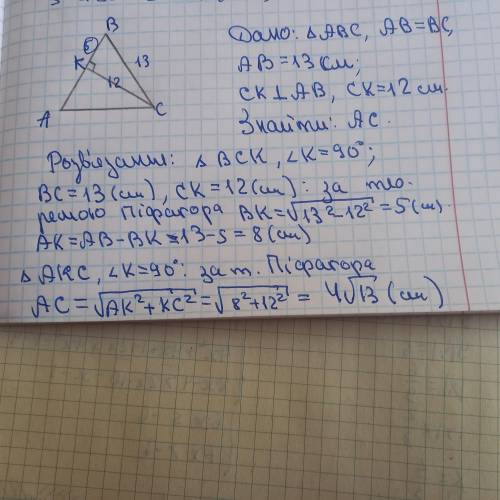 B
5
K
13
12
A
C
Дано: △ABC, AB=BC,
AB=13 см;
CK⊥AB, CK=12 см.
Знайти: AC.
Розв'язання: △BCK, ∠K=90°;
BC=13(см), CK=12(см): за тео-
ремою Піфагора BK=√13²-12²=5(см).
AK=AB-BK=13-5=8(см)
△AKC, ∠K=90°: за т. Піфагора
AC=√AK²+KC²=√8²+12²=4√13(см)